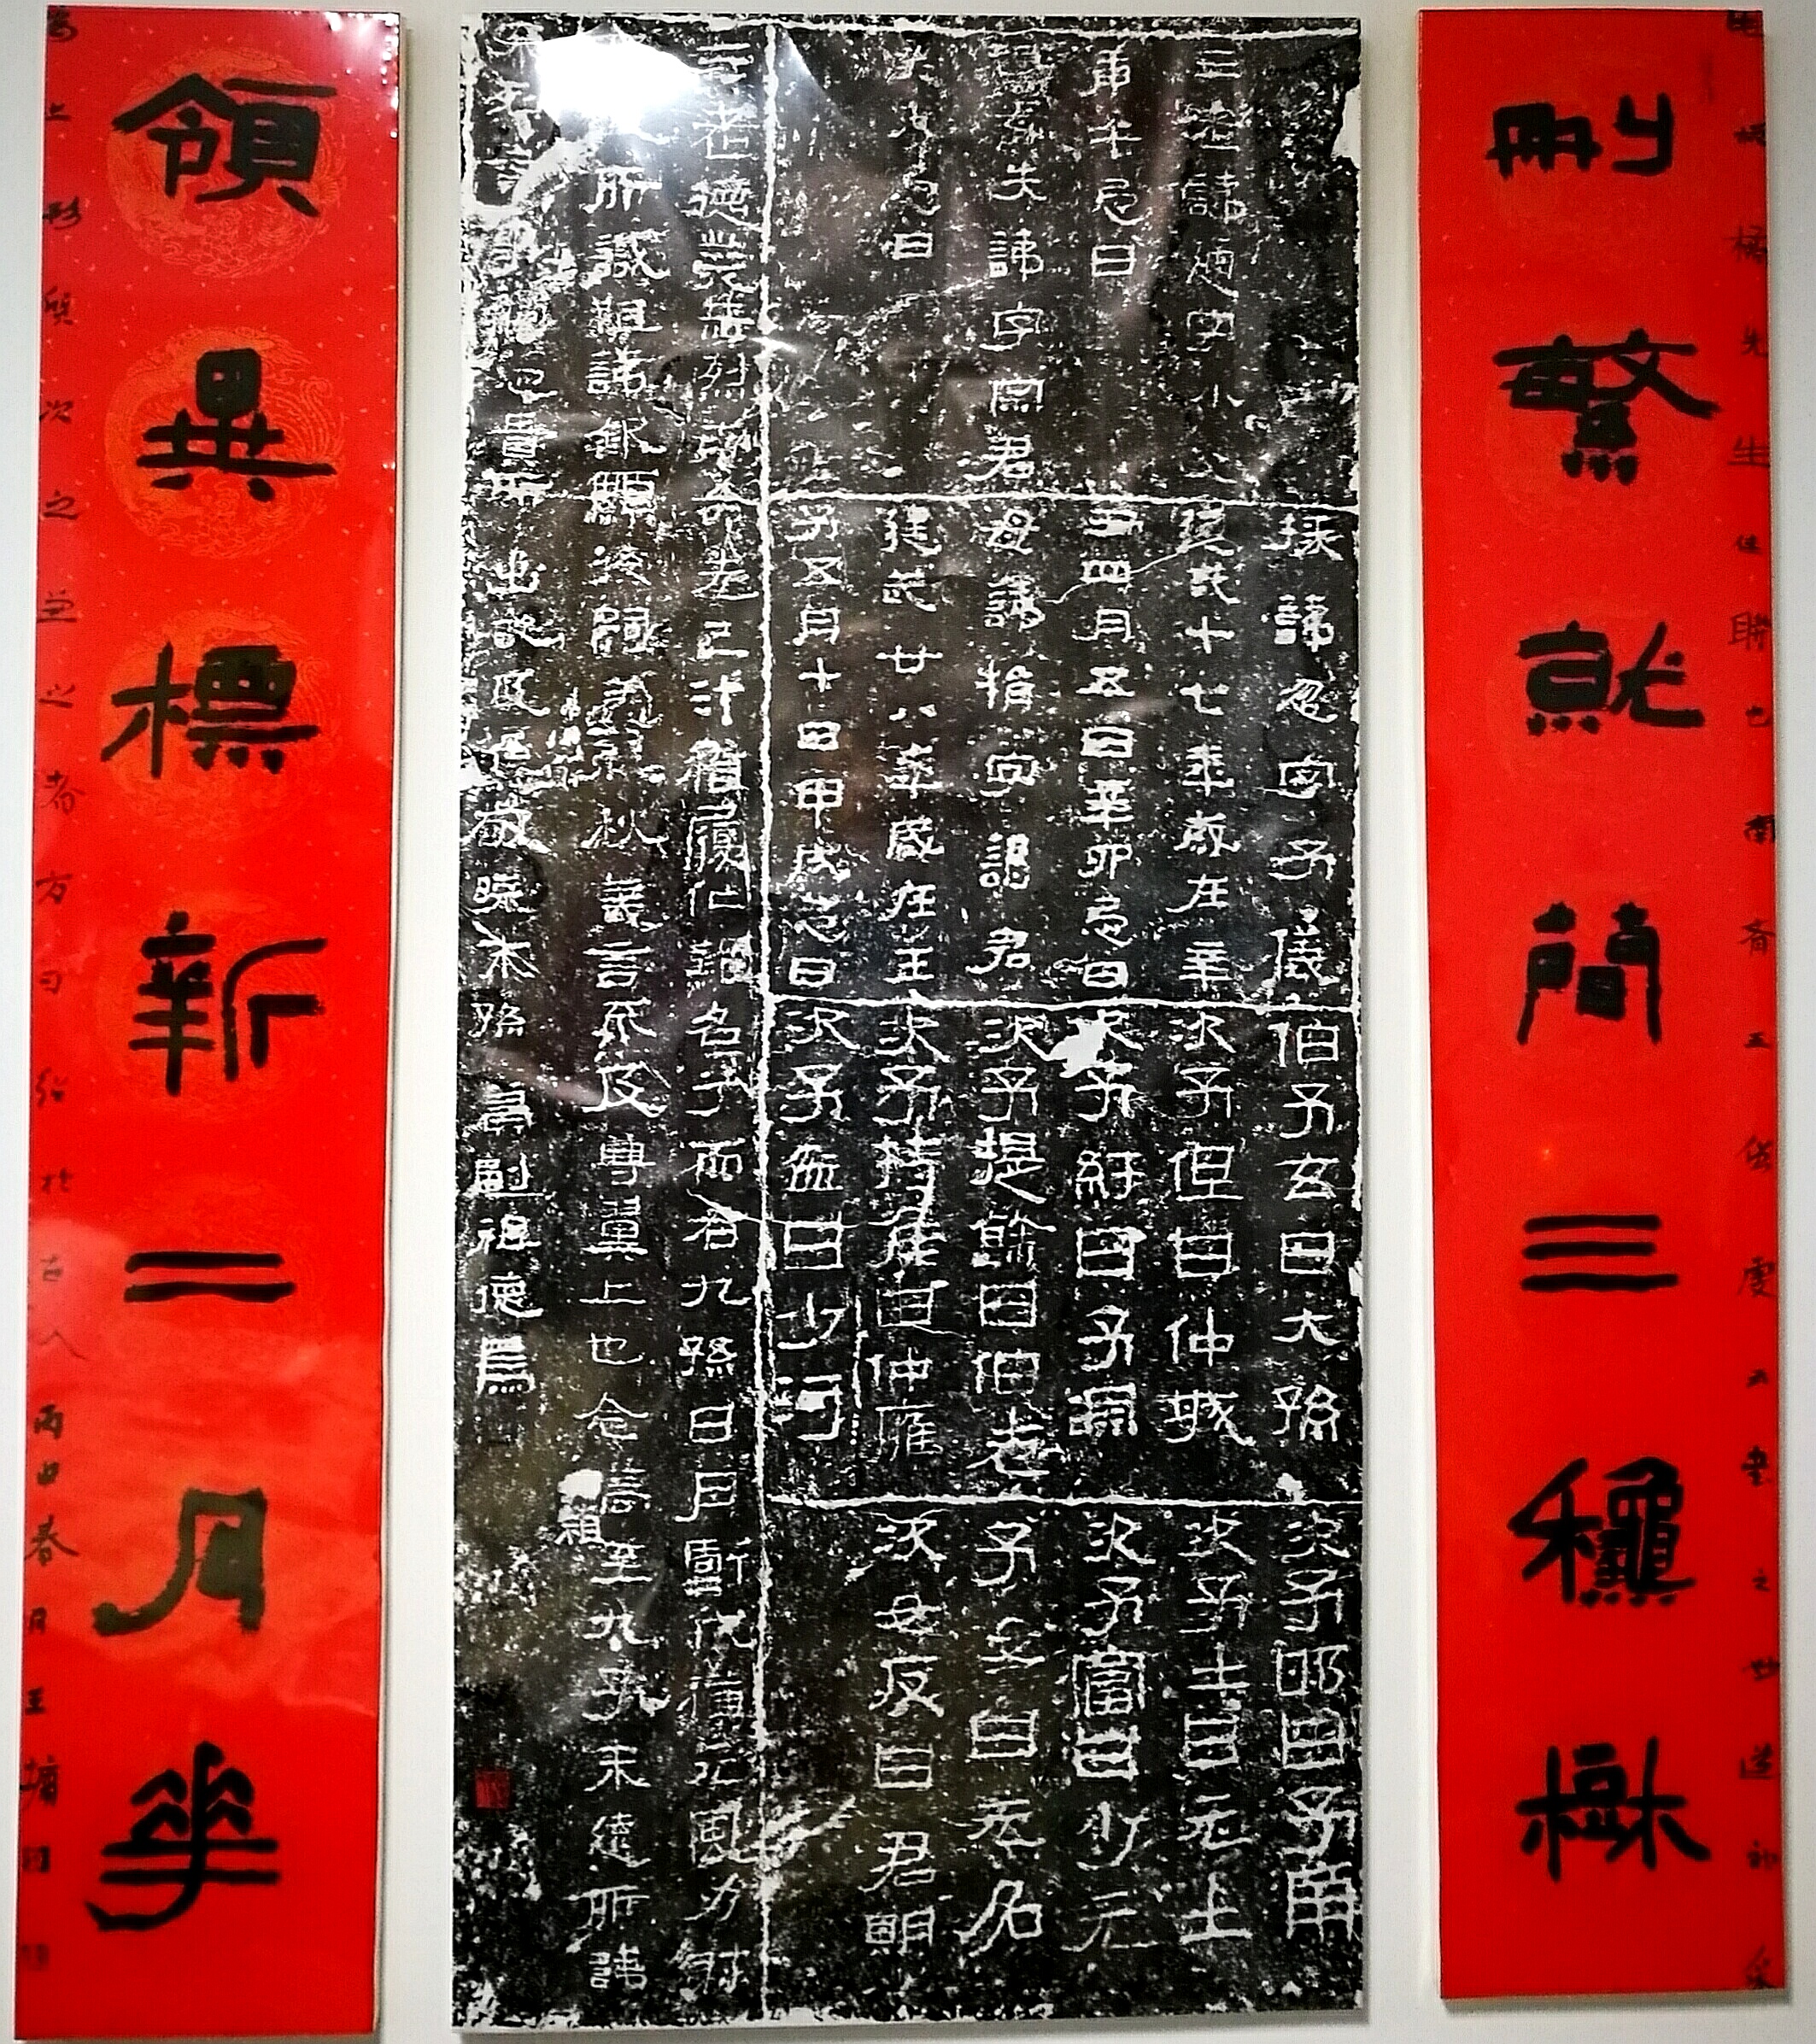 橋先生佳聯也南齊王僧虔云書之妙道神采
刪繁就簡三龝樹
三老諱通字小父
庚午忌日
祖母失諱字宗君
癸未忌日
掾諱忽字子儀
建武十七年歲在辛
丑四月五日辛卯忌日
母諱捐字謁君
建武廿八年歲在壬
子五月十日甲戌忌日
伯子玄曰大孫
次子但曰仲城
次子紆曰子淵
次子提餘曰伯老
次子持侯曰仲雍
次子盆曰少河
次子邯曰子南
次子士曰元士
次子富曰少元
子女曰无名
次女反曰君明
三老德業赫烈克命先己汁稽履仁難名予而右九孫日月虧代猶元風力射
所識祖諱欽顯後嗣蓋春秋義言不及尊翼上也念高祖至九子未遠所諱
不列言事觸忌貴所出嚴及敬曉末孫冀副祖德焉
領異標新二月華
為上形質次之兼之者方可紹於古人丙申春月王墉